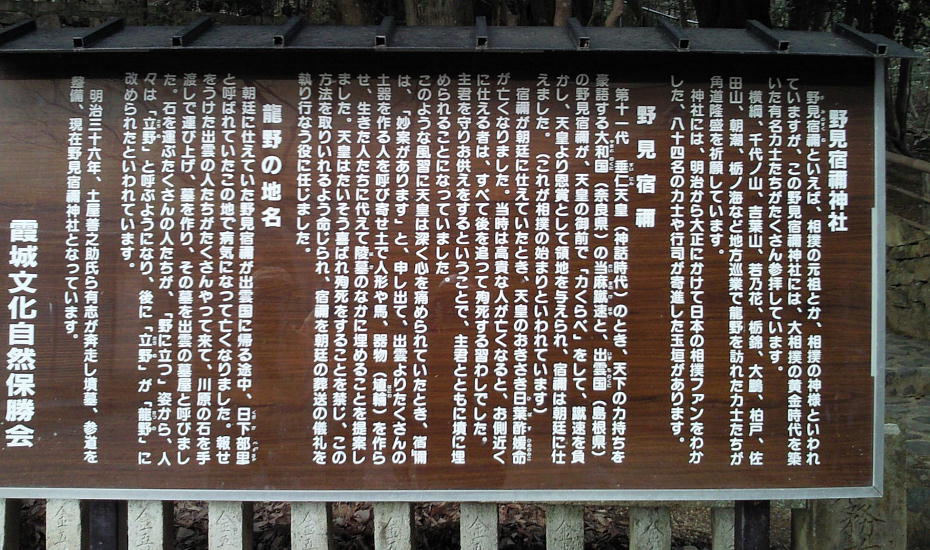 野見宿禰神社
野見宿禰といえば、相撲の元祖とか、相撲の神様といわれ
ていますが、この野見宿禰神社には、大相撲の黄金時代を築
いた有名力士たちがたくさん参拝しています。
横綱、千代ノ山、吉葉山、若乃花、栃錦、大鵬、柏戸、佐
田山、朝潮、栃ノ海など地方巡業で龍野を訪れた力士たちが
角道隆盛を祈願しています。
神社には、明治から大正にかけて日本の相撲ファンをわか
した、八十四名の力士や行司が寄進した玉垣があります。
野見宿禰
第十一代 垂仁天皇(神話時代)のとき、天下の力持ちを
豪語する大和国(奈良県)の当麻蹴速と、出雲国(島根県)
の野見宿禰が、天皇の御前で「力くらべ」をして、蹴速を負
かし、天皇より恩賞として領地を与えられ、宿禰は朝廷に仕
えました。(これが相撲の始まりといわれています)
宿禰が朝廷に仕えていたとき、天皇のおきさき日葉酢媛命
が亡くなりました。当時は高貴な人が亡くなると、お側近く
に仕える者は、すべて後を追って殉死する習わしでした。
主君を守りお供えをするということで、主君とともに墳に埋
められることになっていました。
このような風習に天皇は深く心を痛められていたとき、宿禰
は、「妙案があります」と、申し出て、出雲よりたくさんの
土器を作る人を呼び寄せ土で人形や馬、器物(埴輪)を作ら
せ、生きた人たちに代えて陵墓のなかに埋めることを提案し
ました。天皇はたいそう喜ばれ殉死をすることを禁じ、この
方法を取りいれるよう命じられ、宿禰を朝廷の葬送の儀礼を
執り行なう役に任じました。
龍野の地名
朝廷に仕えていた野見宿禰が出雲国に帰る途中、日下部里
と呼ばれていたこの地で病気になって亡くなりました。報せ
をうけた出雲の人たちがたくさんやって来て、川原の石を手
渡しで運び上げ、墓を作り、その墓を出雲の墓屋と呼びまし
た。石を運ぶたくさんの人たちが、「野に立つ」姿から、人
々は、「立野」と呼ぶようになり、後に「立野」が「龍野」に
改められたといわれています。
明治三十六年、土屋善之助氏ら有志が奔走し墳墓、参道を
整備、現在野見宿禰神社となっています。
霞城文化自然保勝会